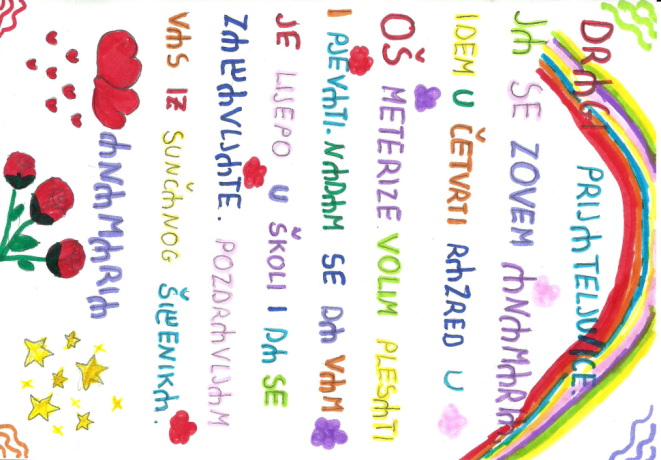 DRAGI
PRIJATELJI/ICE!
JA SE ZOVEM ANAMARIA
IDEM U ČETVRTI RAZRED U
OŠ METERIZE. VOLIM PLESATI
I PJEVATI. NADAM SE DA VAM
JE LIJEPO U ŠKOLI I DA SE
ZABAVLJATE. POZDRAVLJAM
VAS IZ SUNČANOG ŠIBENIKA.
ANAMARIA